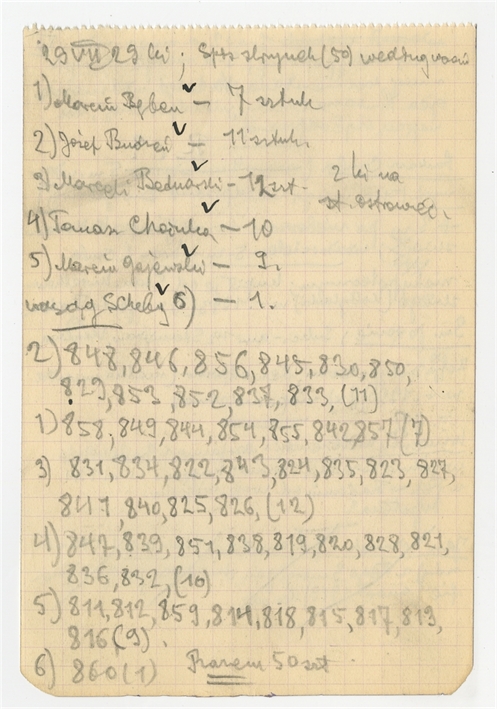 29 VII 29 ki; Spis skrzynek (50) według wozów
1) Marcin Bęben – 7 sztuk
2) Józef Budzeń – 11 sztuk.
3) Marceli Bednarski – 12 szt.
2 ki na
st. Ostrowiec.
4) Tomasz Chożuka – 10
5) Marcin Gajewski – 9.
6) – 1.
2) 848, 846, 856, 845, 830, 850,
829, 853, 852, 837, 833, (11)
1) 858, 849, 844, 854, 855, 842, 857 (7)
3) 831, 834, 822, 843, 824, 835, 823, 827,
841, 840, 825, 826, (12)
4) 847, 839, 851, 838, 819, 820, 828, 821,
836, 832, (10)
5) 811, 812, 859, 814, 818, 815, 817, 813,
816 (9).
6) 860 (1) Razem 50 szt.